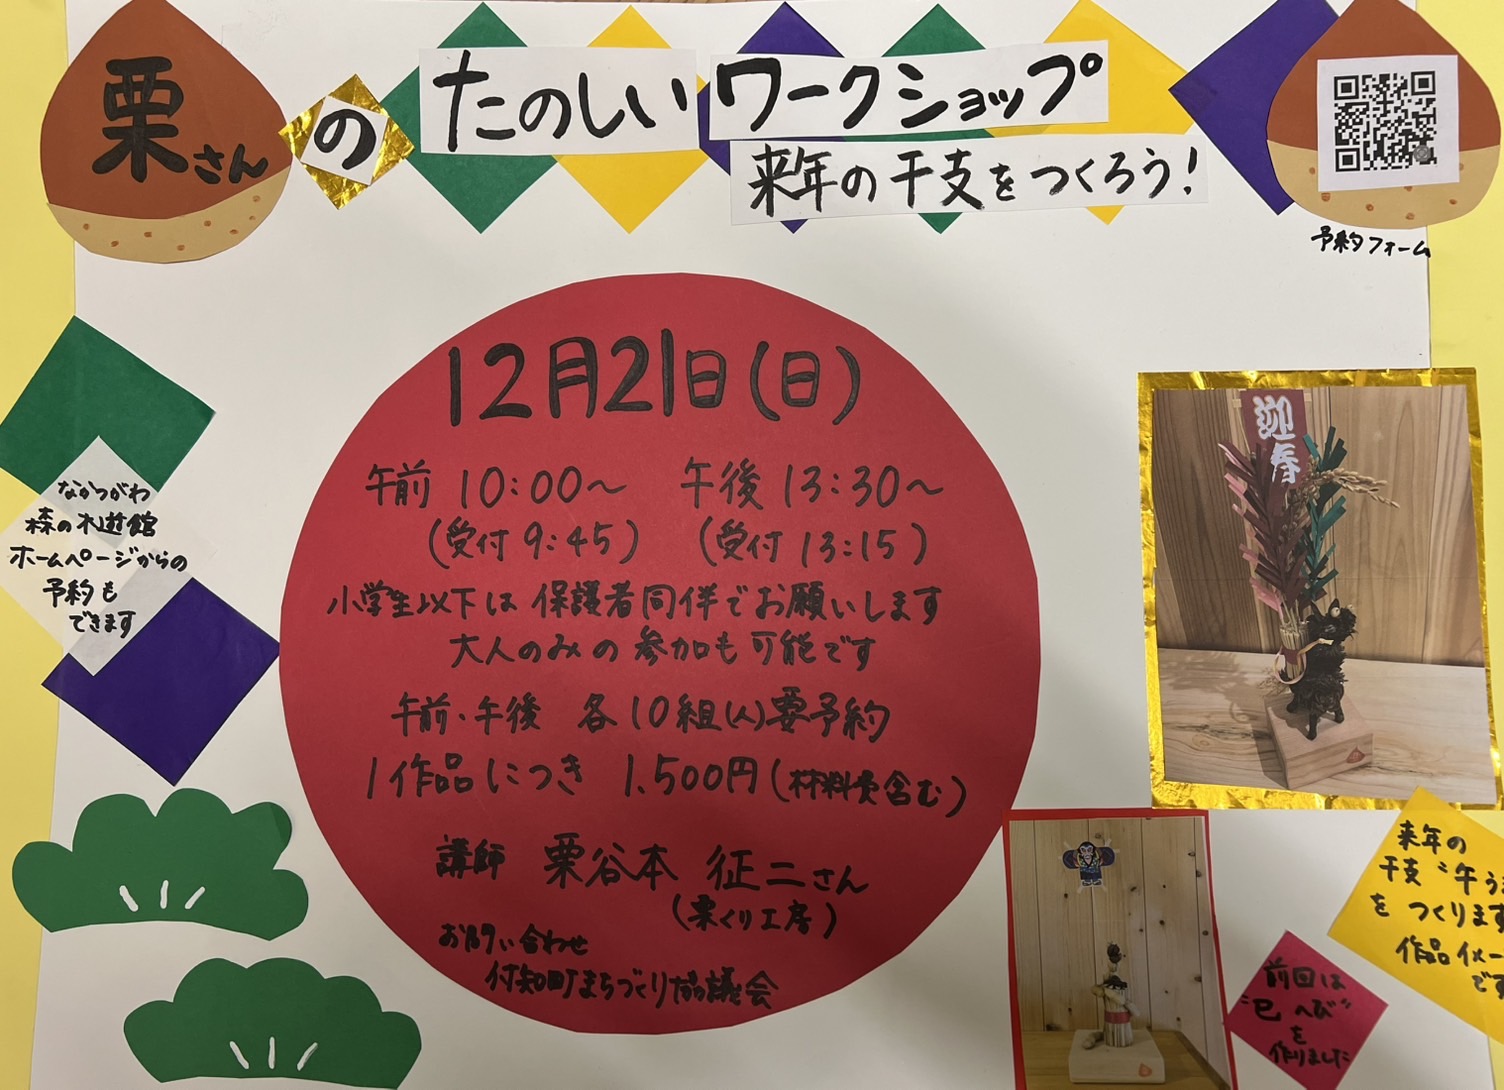 栗さん
の
たのしい ワークショップ
来年の干支をつくろう!
予約フォーム
12月21日(日)
午前 10:00～ 午後 13:30～
(受付 9:45) (受付 13:15)
小学生以下は保護者同伴でお願いします
大人のみの参加も可能です
午前・午後 各10組(人)要予約
1作品につき 1,500円(材料費含む)
講師 栗谷本 征二さん
(栗くり工房)
お問い合わせ
付知町まちづくり協議会
なかつがわ
森の木遊館
ホームページからの
予約も
できます
迎春
来年の
干支"午う
をつくります
作品イメー
です
前回は
"巳へび"
を
作りました